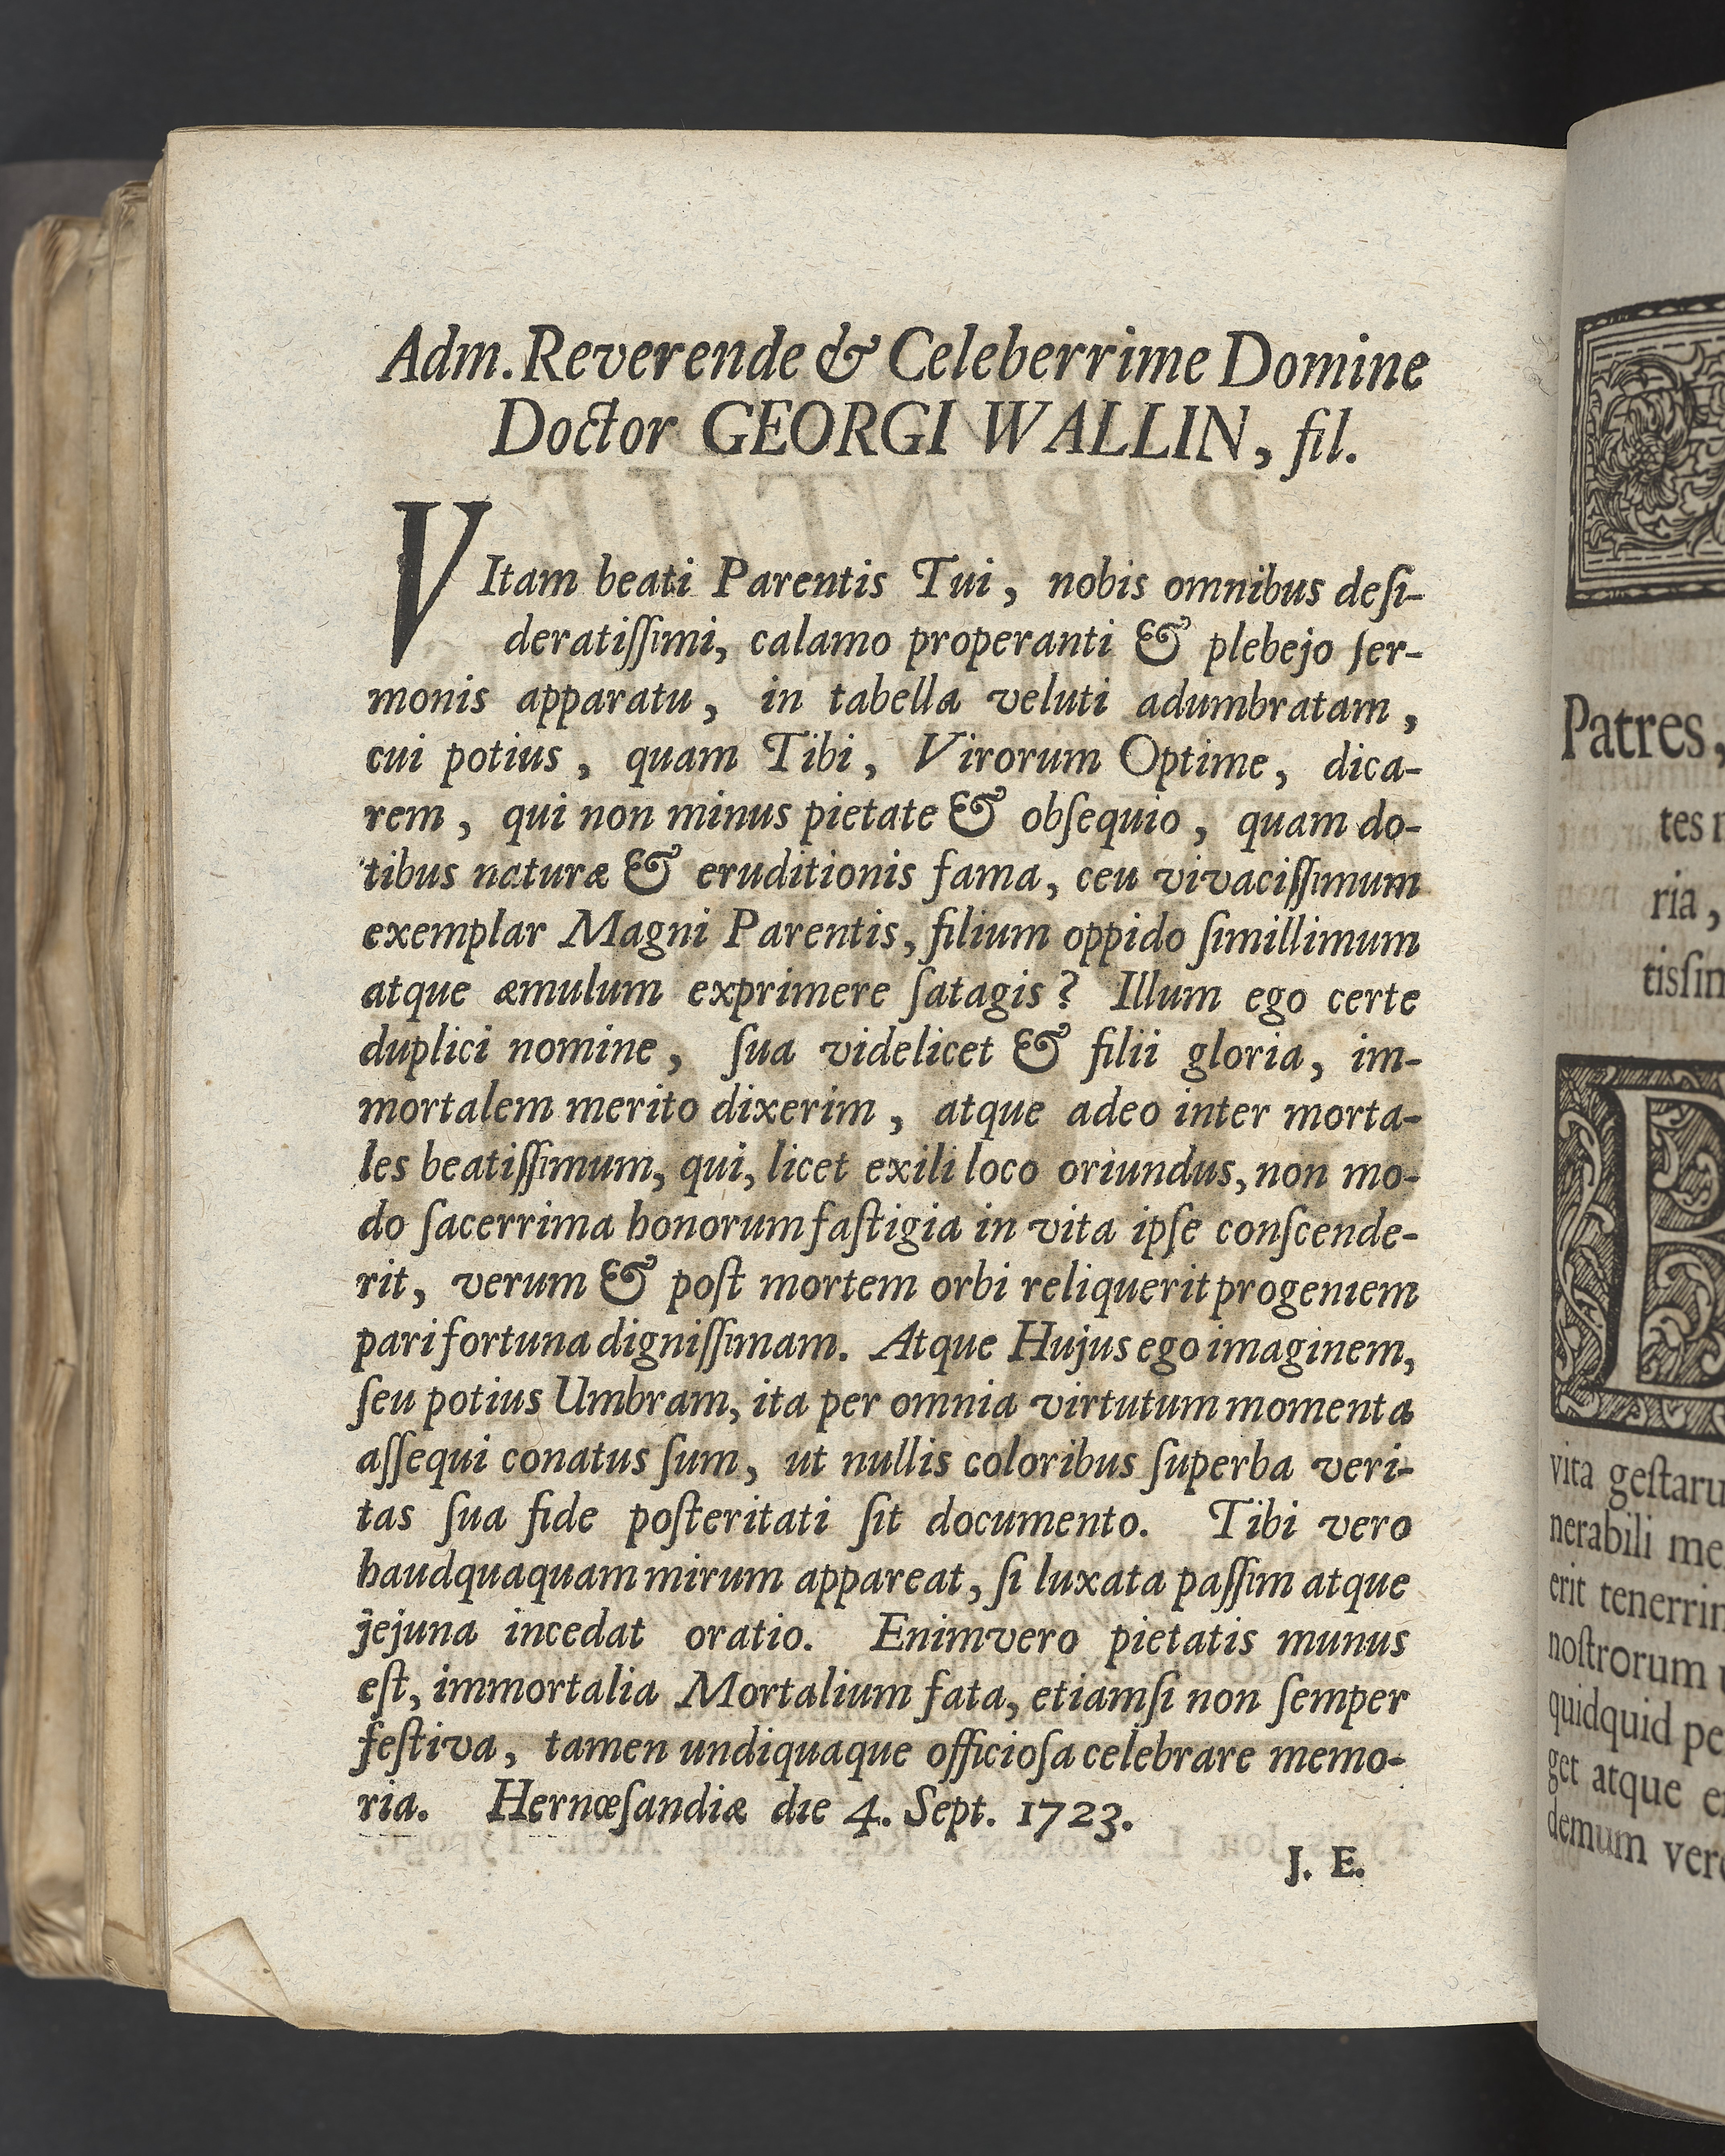 Adm. Reverende & Celeberrime Domine
Doctor GEORGI WALLIN, fil.
VItam beati Parentis Tui, nobis omnibus deſi-
deratiſſimi, calamo properanti & plebejo ſer-
monis apparatu, in tabella veluti adumbratam,
cui potius, quam Tibi, Virorum Optime, dica-
rem, qui non minus pietate & obſequio, quam do-
tibus naturæ & eruditionis fama, ceu vivaciſſimum
exemplar Magni Parentis, filium oppido ſimillimum
atque æmulum exprimere ſatagis? Illum ego certe
duplici nomine, ſua videlicet & filii gloria, im-
mortalem merito dixerim, atque adeo inter morta-
les beatiſſimum, qui, licet exili loco oriundus, non mo-
do ſacerrima honorum faſtigia in vita ipſe conſcende-
rit, verum & poſt mortem orbi reliquerit progeniem
pari fortuna digniſſimam. Atque Hujus ego imaginem,
ſeu potius Umbram, ita per omnia virtutum momenta
aſſequi conatus ſum, ut nullis coloribus ſuperba veri-
tas ſua fide poſteritati ſit documento. Tibi vero
haudquaquam mirum appareat, ſi luxata paſſim atque
jejuna incedat oratio. Enimvero pietatis munus
eſt, immortalia Mortalium fata, etiamſi non ſemper
feſtiva, tamen undiquaque officioſa celebrare memo-
ria. Hernœſandiæ die 4. Sept. 1723.
J. E.
Patres,
tes
ria,
vita geſtaru
nerabili me
erit tenerrin
noſtrorum
quidquid pe
get atque e
demum vere